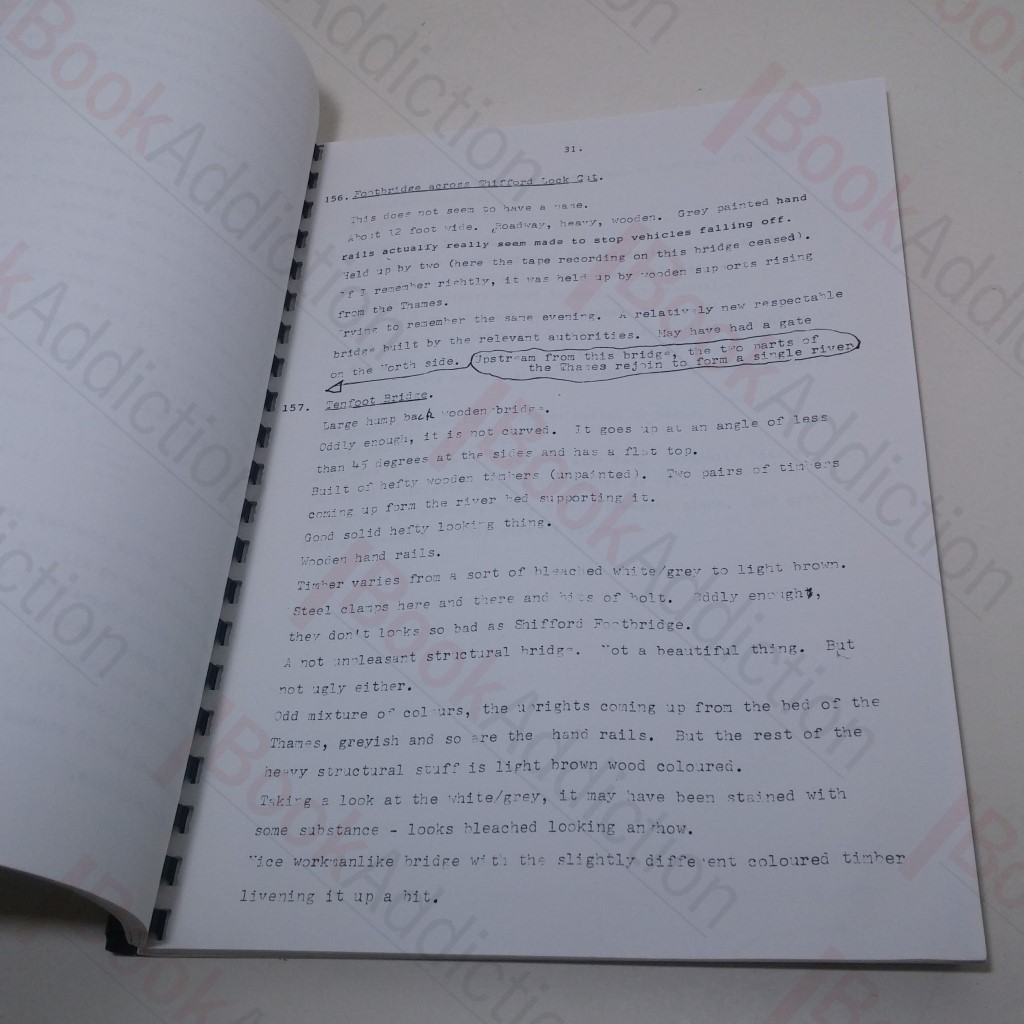 31.
156. Footbridge across Shifford Lock Cut.
This does not seem to have a name.
About 12 foot wide. Roadway, heavy, wooden. Grey painted hand
rails actually really seem made to stop vehicles falling off.
Held up by two (here the tape recording on this bridge ceased).
If I remember rightly, it was held up by wooden supports rising
from the Thames.
Trying to remember the same evening. A relatively new respectable
bridge built by the relevant authorities. May have had a gate
on the North side. Upstream from this bridge, the two parts of
the Thames rejoin to form a single river
157. Tenfoot Bridge.
Large hump back wooden bridge.
Oddly enough, it is not curved. It goes up at an angle of less
than 45 degrees at the sides and has a flat top.
Built of hefty wooden timbers (unpainted). Two pairs of timbers
coming up form the river bed supporting it.
Good solid hefty looking thing.
Wooden hand rails.
Timber varies from a sort of bleached white/grey to light brown.
Steel clamps here and there and bits of bolt. Oddly enough,
they don't looks so bad as Shifford Footbridge.
A not unpleasant structural bridge. Not a beautiful thing. But
not ugly either.
Odd mixture of colours, the uprights coming up from the bed of the
Thames, greyish and so are the hand rails. But the rest of the
heavy structural stuff is light brown wood coloured.
Taking a look at the white/grey, it may have been stained with
some substance - looks bleached looking anyhow.
Nice workmanlike bridge with the slightly different coloured timber
livening it up a bit.
BookAddiction